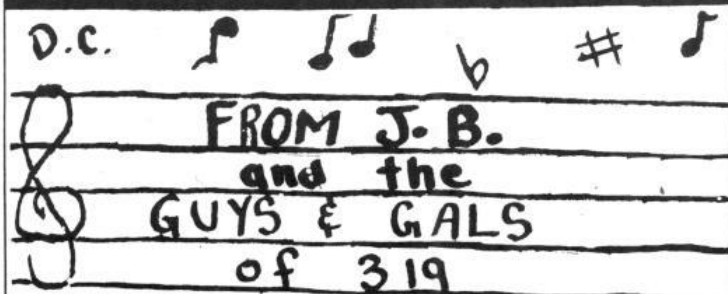 D.C.
FROM J. B.
and the
GUYS & GALS
of 319